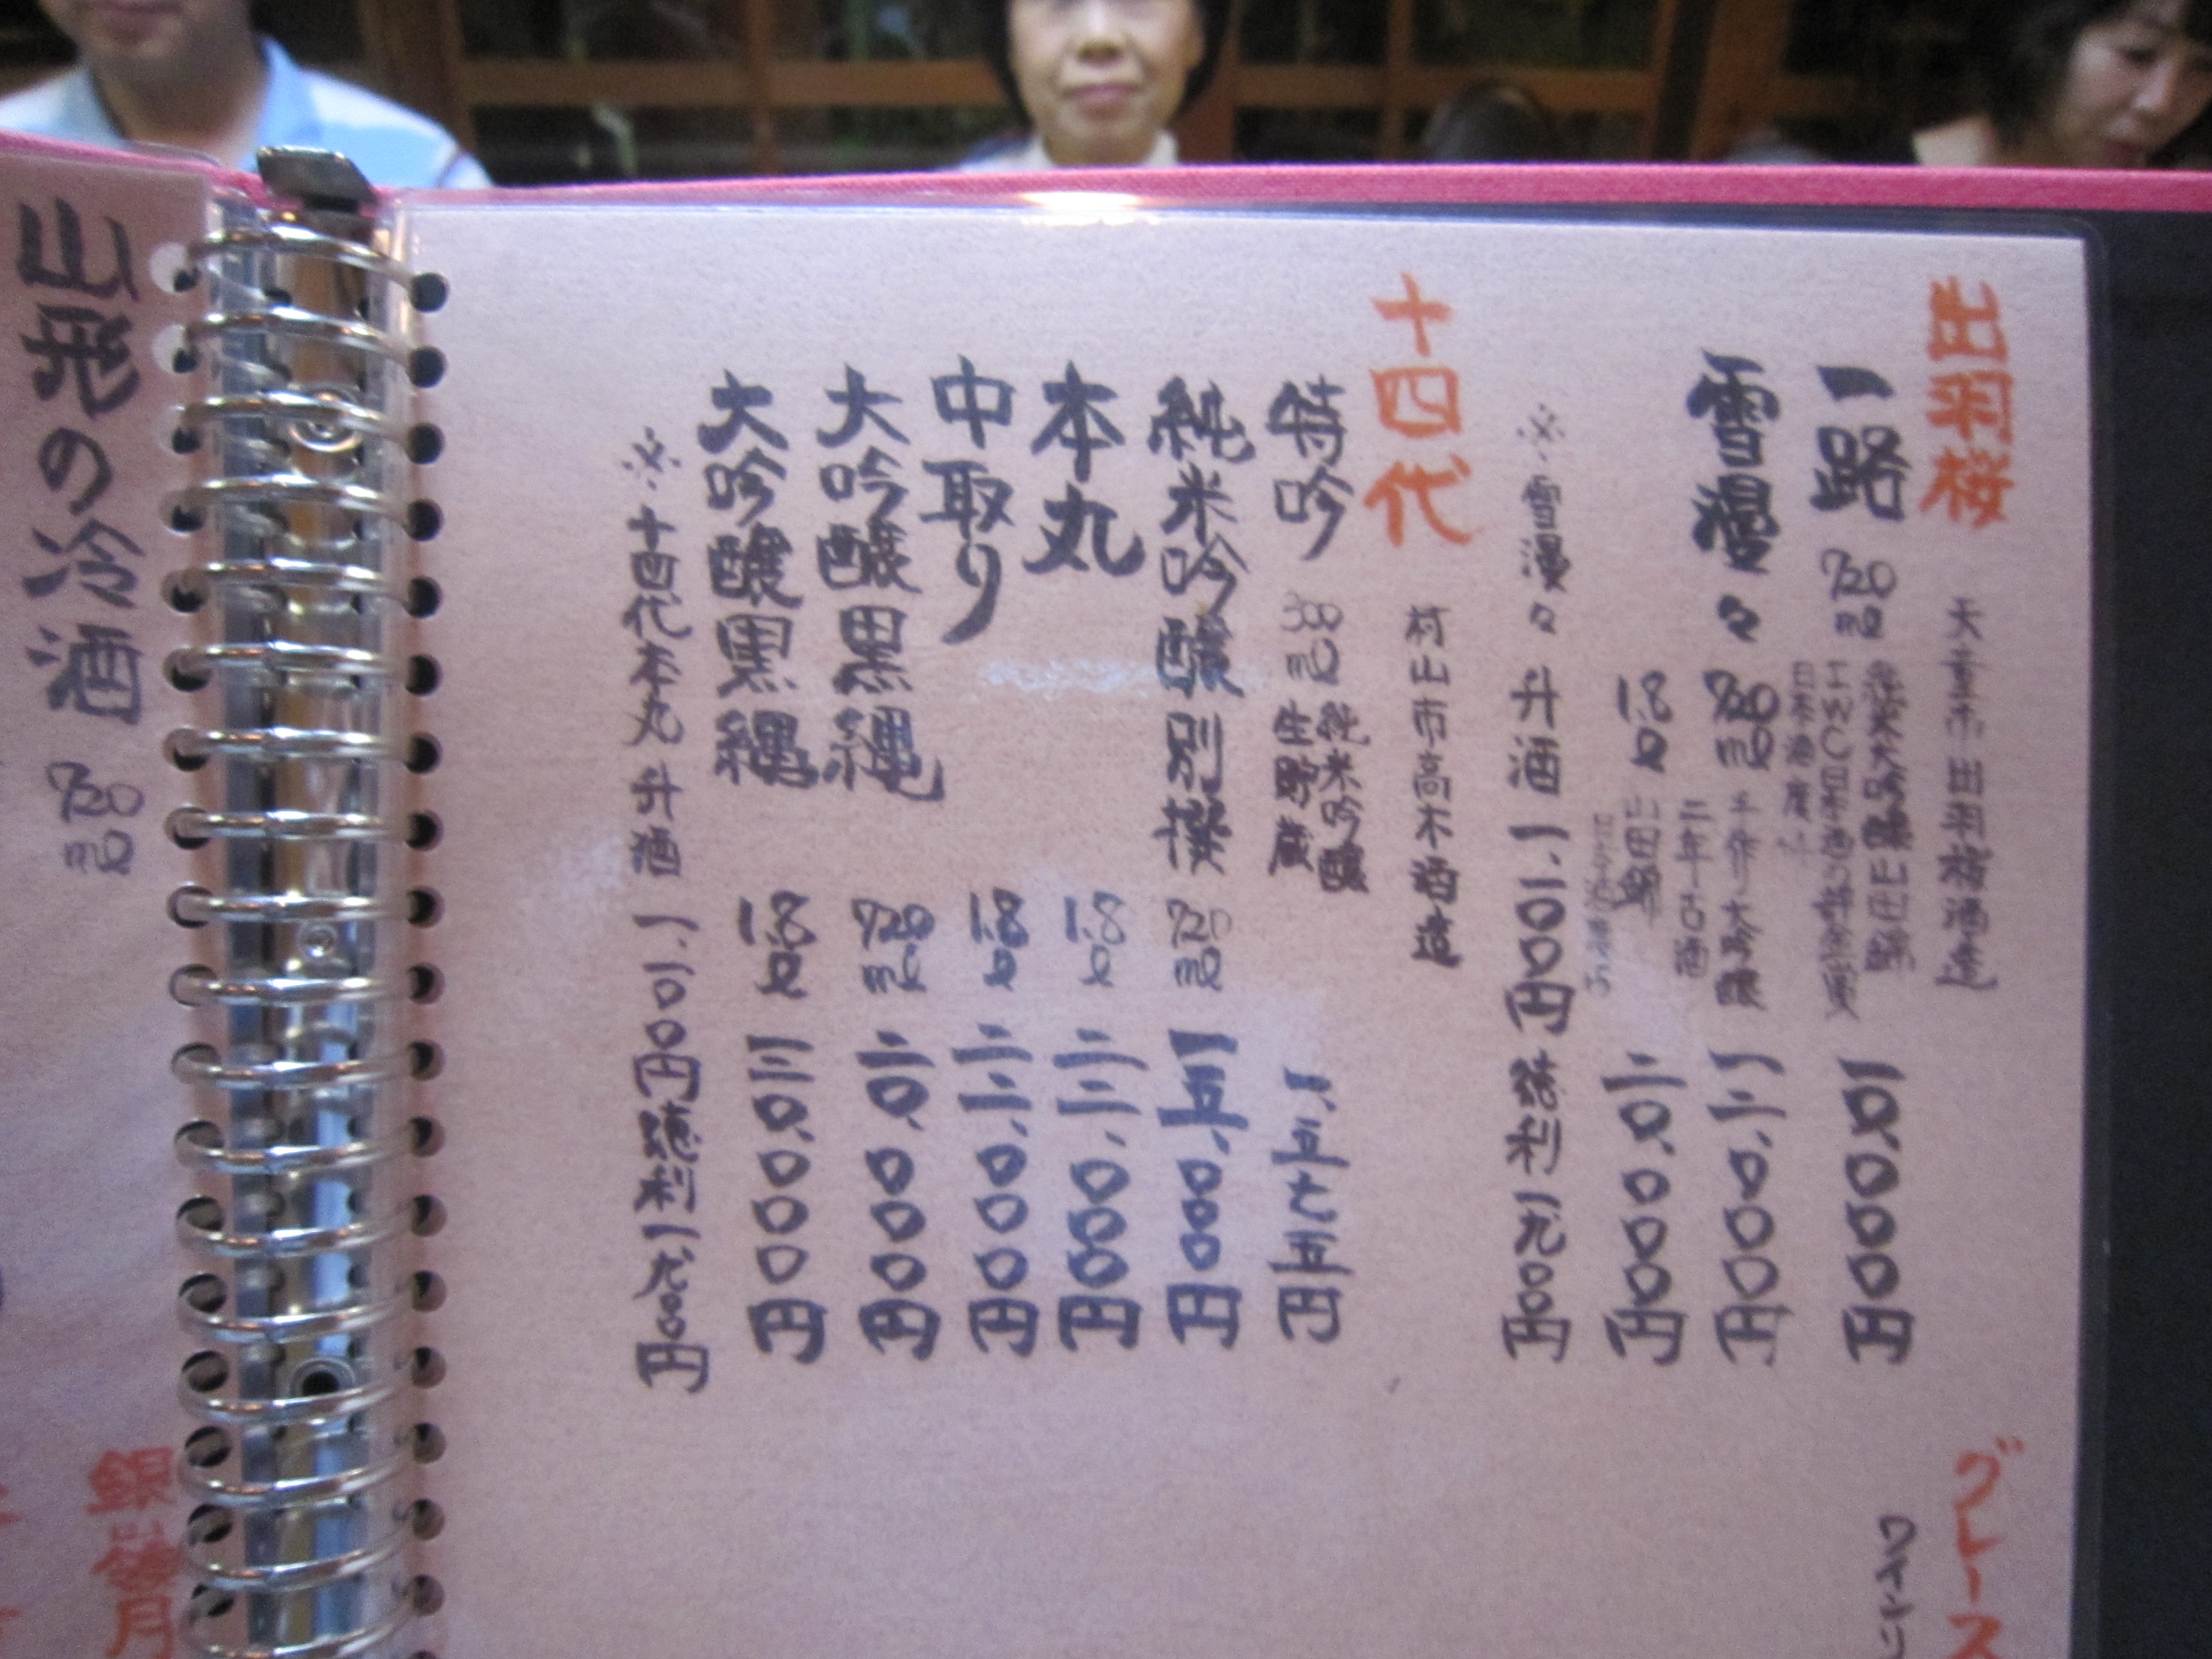 出羽桜 天童市出羽桜酒造
一路 720ml 純米大吟醸山田錦 一〇,〇〇〇円
IWC日本酒の部金賞
日本酒度
雪漫々 720ml 手作り大吟醸 一二,〇〇〇円
二年古酒
1.8l 山田錦 二〇,〇〇〇円
※雪漫々 升酒 一,二〇〇円 徳利 一九〇〇円
十四代 村山市高木酒造
特吟 300ml 純米吟醸 生貯蔵 一,五七五円
純米吟醸別撰 720ml 一五,〇〇〇円
本丸 1.8l 二二,〇〇〇円
中取り 1.8l 二二,〇〇〇円
大吟醸黒縄 720ml 二〇,〇〇〇円
大吟醸黒縄 1.8l 三〇,〇〇〇円
※十四代本丸 升酒 一,二〇〇円 徳利 一九〇〇円
グレース
ワイン
山形の冷酒 720ml
銀嶺月山